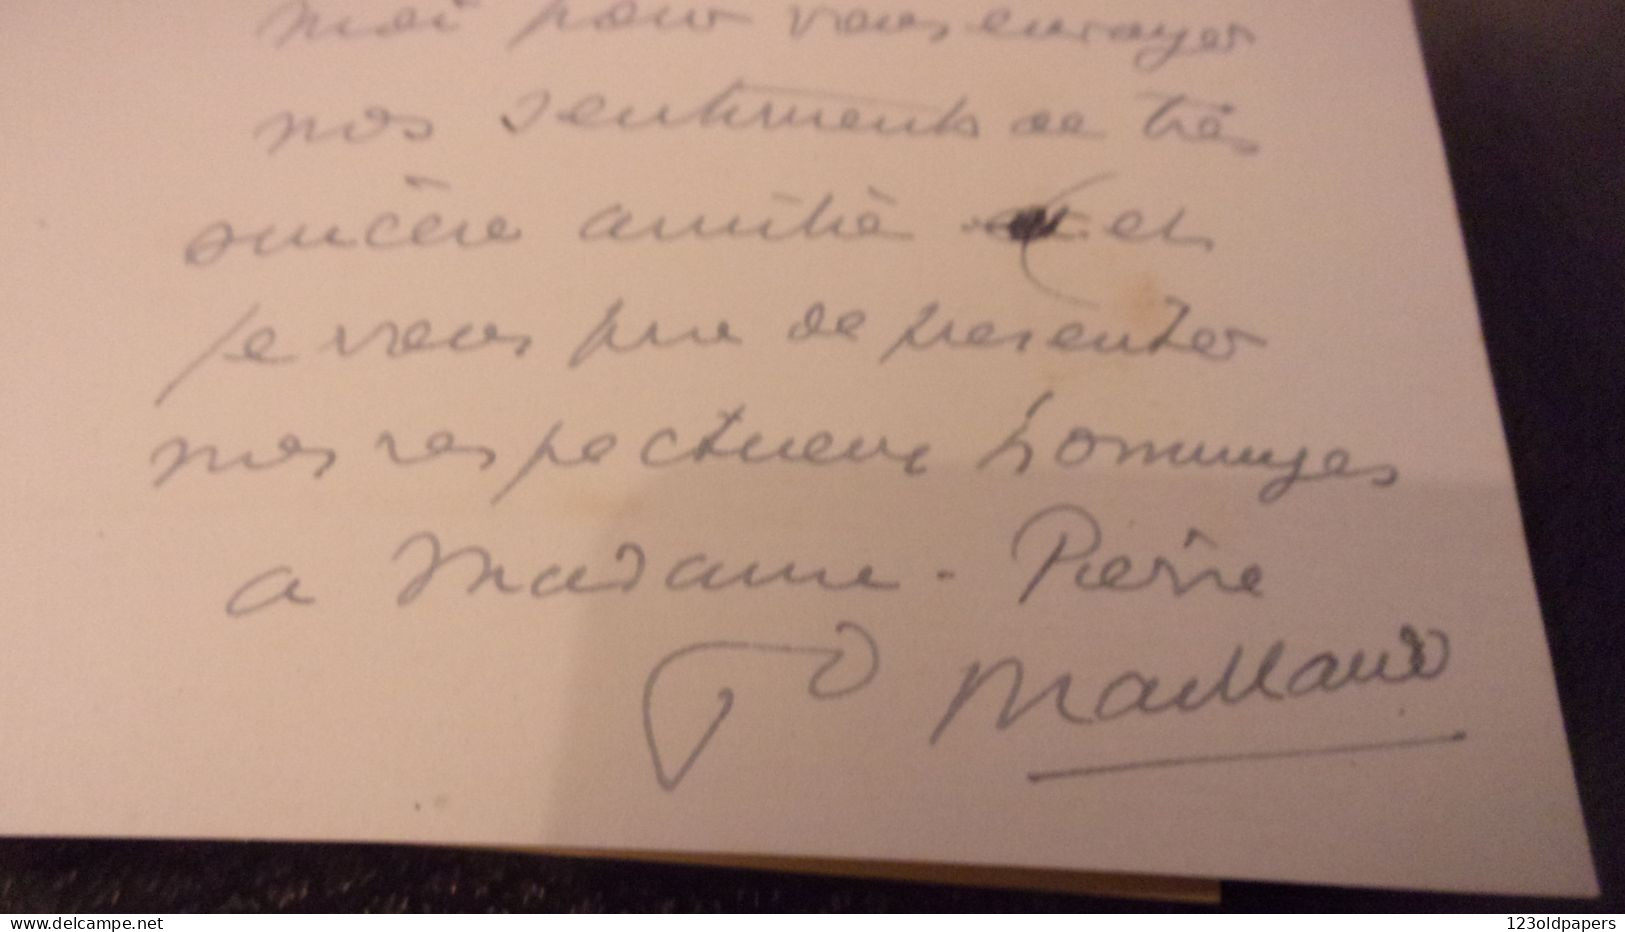 moi pour vous envoyer
nos sentiments de très
sincère amitié et
je vous prie de présenter
mes respectueux hommages
a Madame - Pierre
P Maillaud
www.delcampe.net
123oldpapers